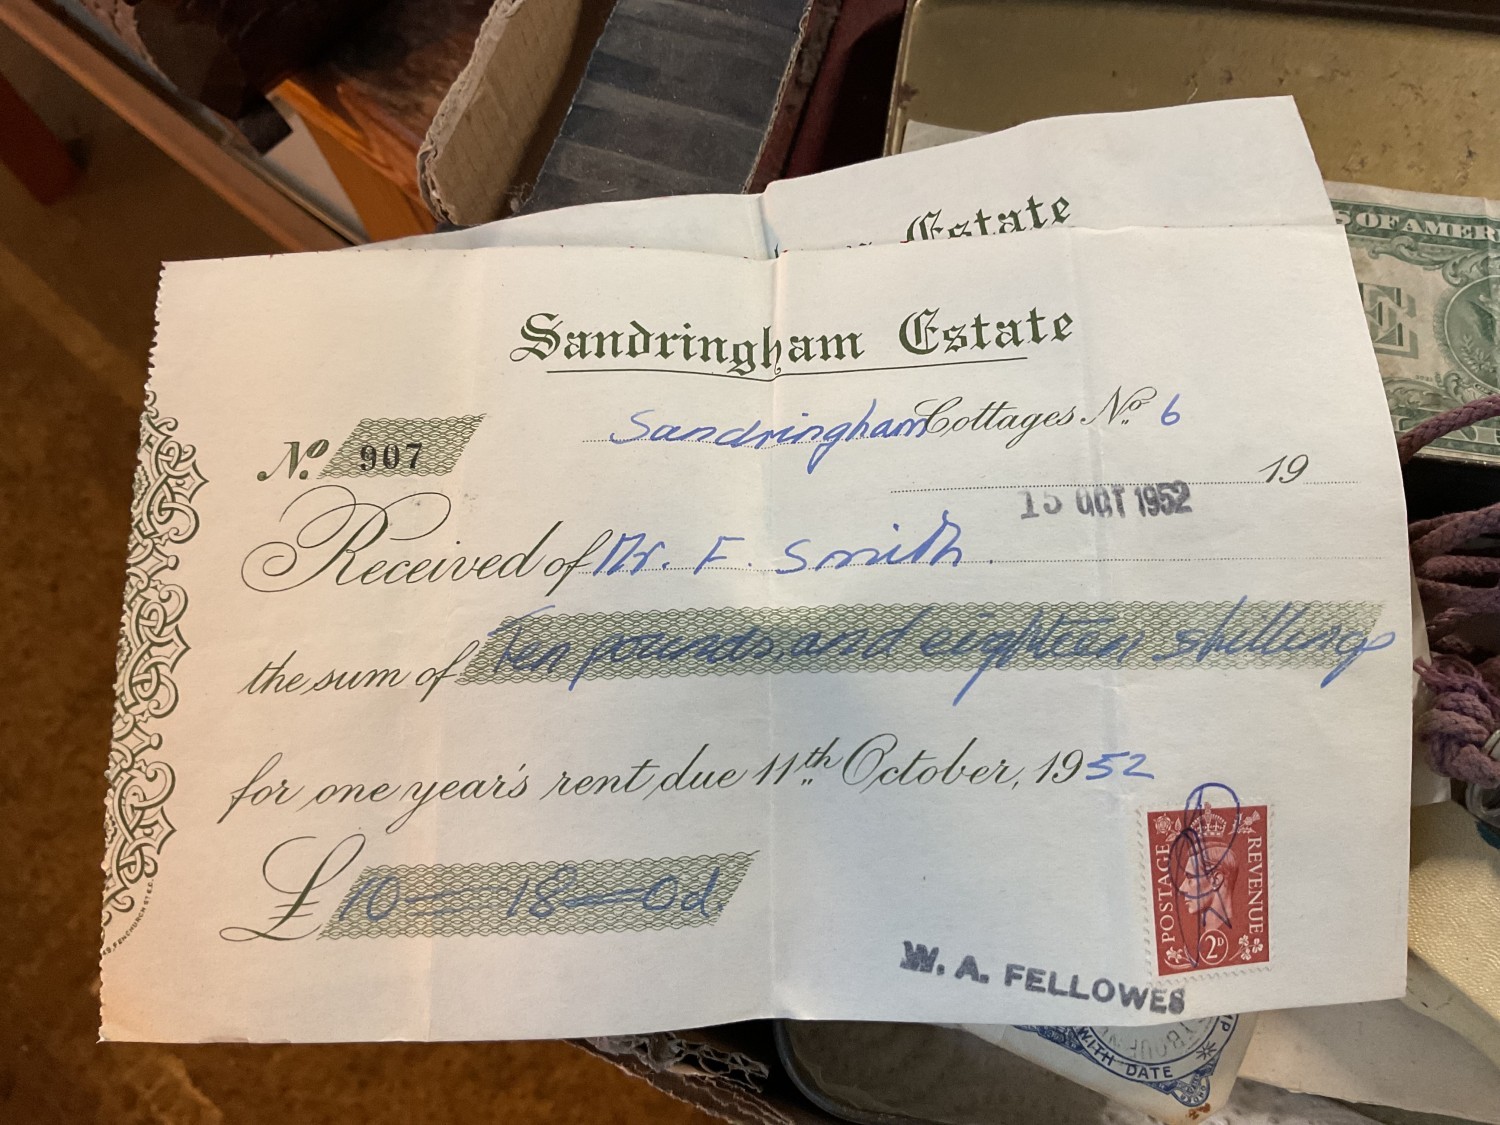 Estate
S OF AMER
Sandringham Estate
Sandringham Cottages No. 6
No. 907
19
15 OCT 1952
Received of Mr. F. Smith
the sum of Ten pounds and eighteen shillings
for one year's rent due 11th October, 1952
£ 10 = 18 = 0d.
POSTAGE REVENUE
2D
W. A. FELLOWES
FENCHURCH ST E.C.
WITH DATE